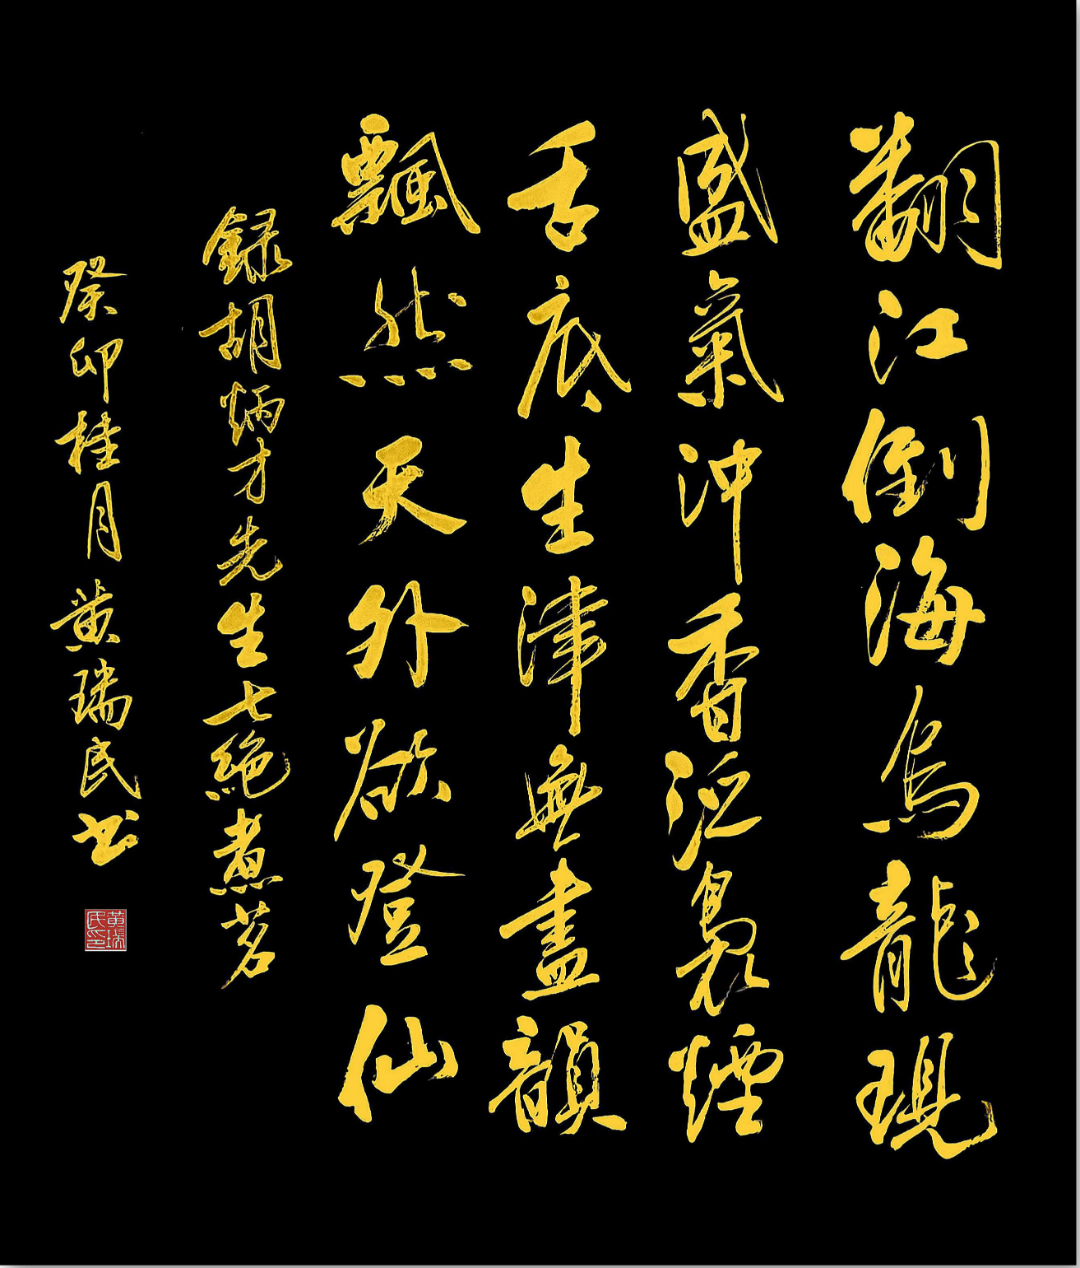 翻江倒海烏龍現
盛氣沖香泛裊煙
舌底生津無盡韻
飄然天外欲登仙
録胡炳才先生七絶煮茗
癸卯桂月黄瑞民書
黄瑞民印